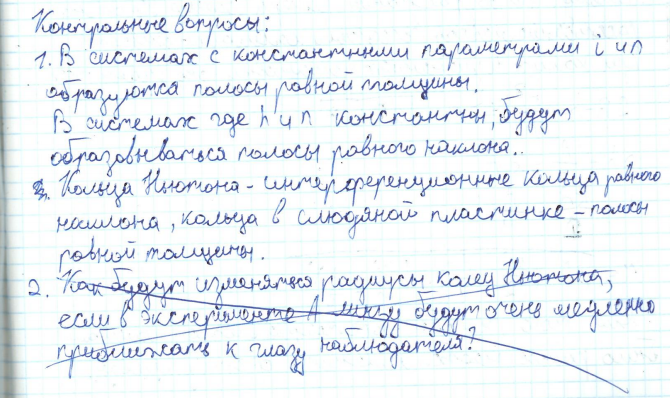 Контрольные вопросы:
1. В системах с константными параметрами i и n
образуются полосы равной толщины.
В системах где h и n константны, будут
образовываться полосы равного наклона..
3. Кольца Ньютона - интерференционные кольца равного
наклона, кольца в слюдяной пластинке - полосы
равной толщины.
2. Как будут изменяться радиусы колец Ньютона,
если в эксперименте А линзу будут очень медленно
приближать к глазу наблюдателя?